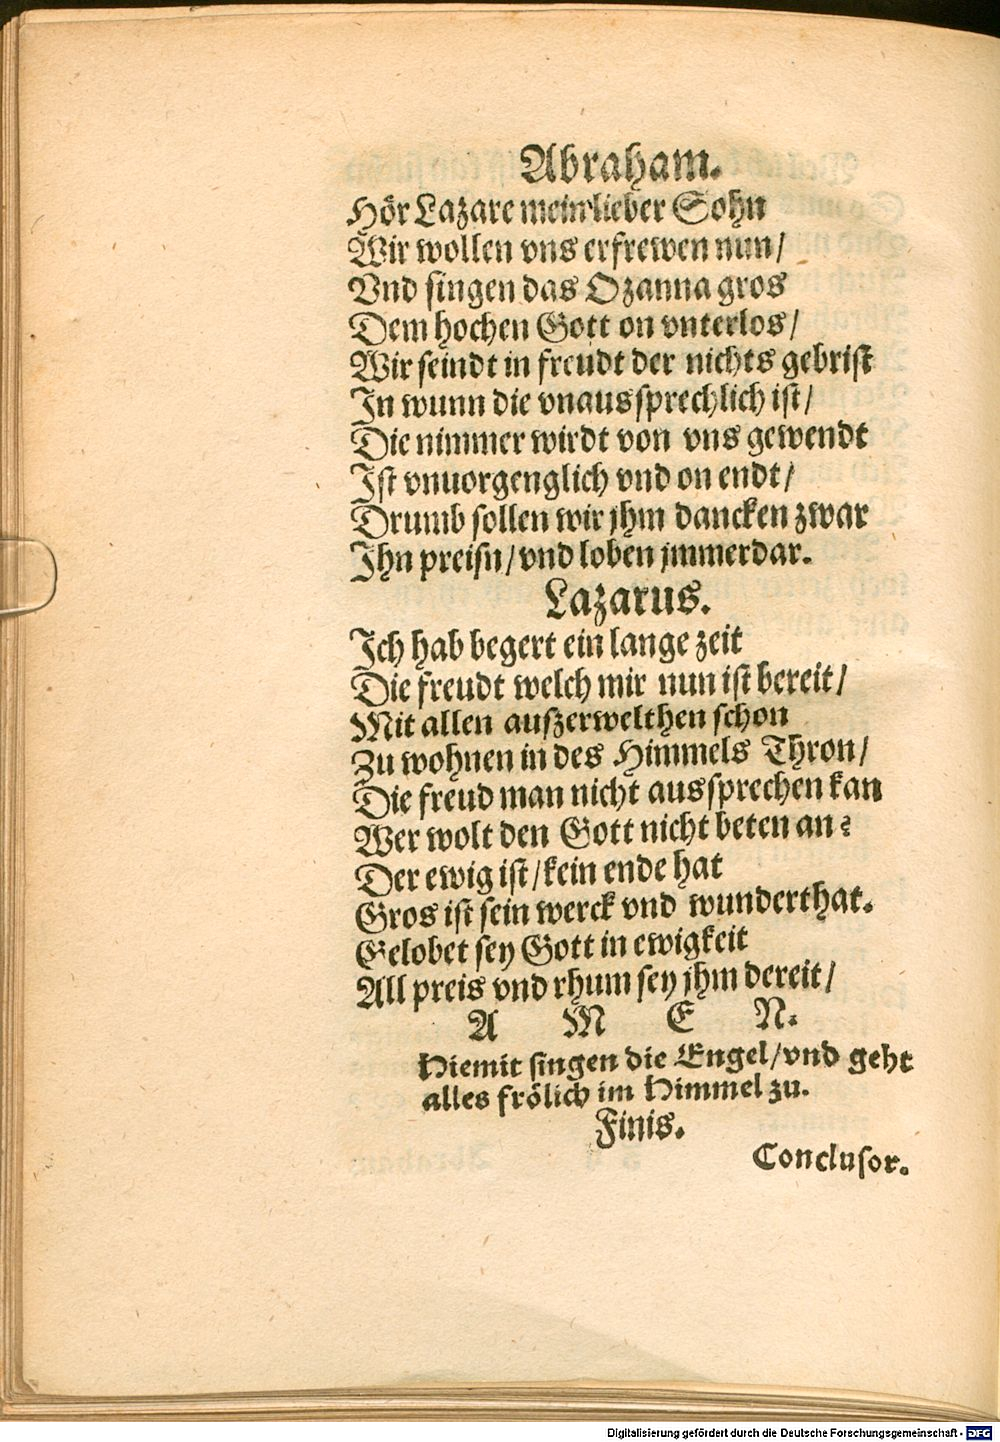 Abraham.
Hör Lazare mein lieber Sohn
Wir wollen vns erfrewen nun/
Vnd singen das Ozanna gros
Dem hochen Gott on vnterlos/
Wir seindt in freudt der nichts gebrist
In wunn die vnaussprechlich ist/
Die nimmer wirdt von vns gewendt
Ist vnuorgenglich vnd on endt/
Drumb sollen wir jhm dancken zwar
Ihn preisn/vnd loben jmmerdar.
Lazarus.
Ich hab begert ein lange zeit
Die freudt welch mir nun ist bereit/
Mit allen außerwelthen schon
Zu wohnen in des Himmels Thron/
Die freud man nicht aussprechen kan
Wer wolt den Gott nicht beten an?
Der ewig ist/kein ende hat
Gros ist sein werck vnd wunderthat.
Gelobet sey Gott in ewigkeit
All preis vnd rhum sey jhm dereit/
A M E N.
Hiemit singen die Engel/vnd geht
alles frölich im Himmel zu.
Finis.
Conclusor.
Digitalisierung gefördert durch die Deutsche Forschungsgemeinschaft - DFG